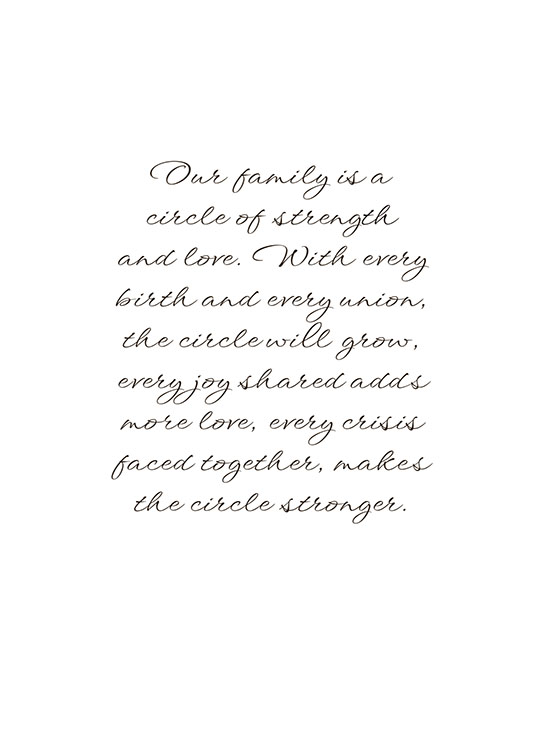 Our family is a
circle of strength
and love. With every
birth and every union,
the circle will grow,
every joy shared adds
more love, every crisis
faced together, makes
the circle stronger.